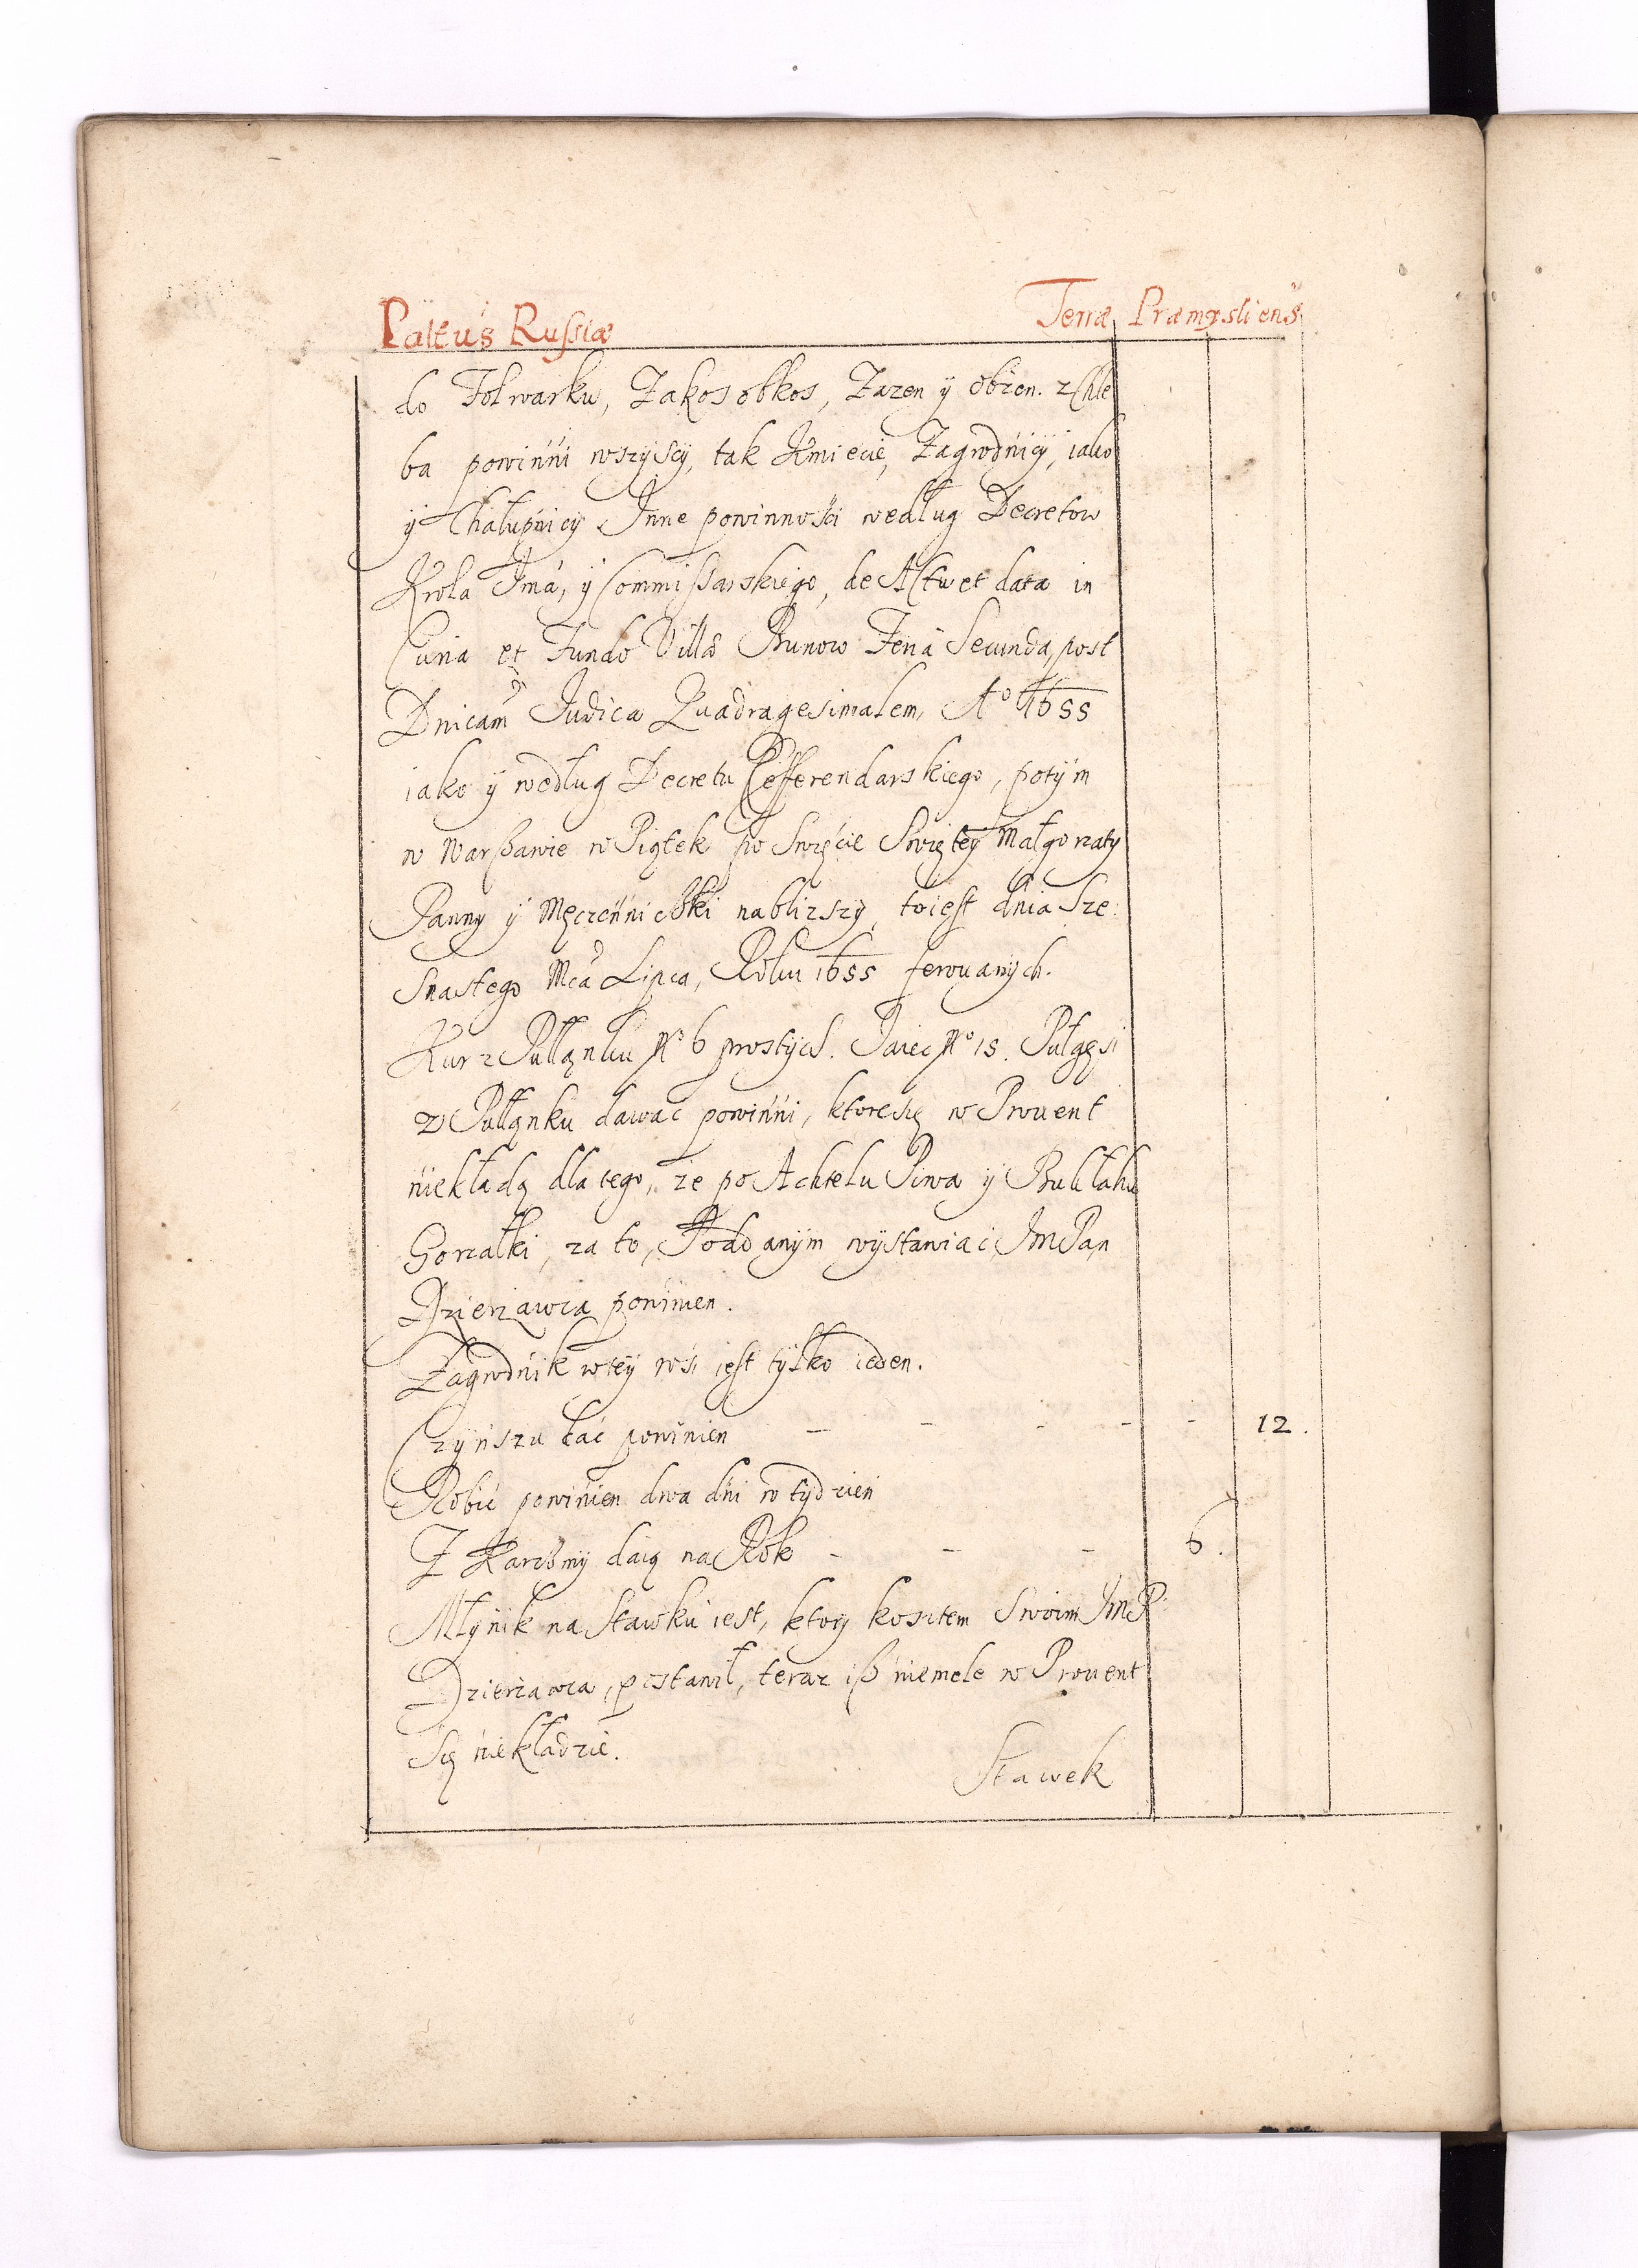 Paltus Russiæ Terræ Præmysliens
do Folwarku, Zakos obkos, Zazen ÿ obzen. z Chle
ba powinni wszÿscÿ, tak Kmiecie, Zagrodnicÿ, iako
ÿ Chałupnicÿ Inne powinnosci według Decretow
Krola Jmā, ÿ Commissarskiego, de Actu et data in
Curia et Fundo Villæ Bunow Feria Secunda, post
Dnicam Judica Quadragesimalem, Aº 1655
iako ÿ według Decretu Refferendarskiego, potÿm
w Warßawie w Piątek po Swięcie Swięteÿ Małgorzaty
Panny ÿ Męczenniczki nablizszÿ, toiest dnia Sze:
snastego Mca Lipca, Roku 1655 ferowanÿch.
Kur z Pułłanku Nº 6 prostÿch. Jaiec Nº 15. Pułgęsi
z Pułłanku dawac powinni, ktore się w Prouent
niekładą dla tego, ze po Achtelu Piwa ÿ Bukłaku
Gorzałki, za to, Poddanÿm wÿstawiac Jm Pan
Dzierzawca powinien.
Zagrodnik w teÿ wsi iest tÿlko ieden.
Czÿnszu dac powinien - - - - - 12.
Robic powinien dwa dni w tÿdzien
Z Karczmÿ daią na Rok - - - 6.
Młÿnik na Stawku iest, ktorÿ kosztem Swoim Jm P:
Dzierzawca, postawił, teraz iß niemele w Prouent
się niekładzie.
Stawek